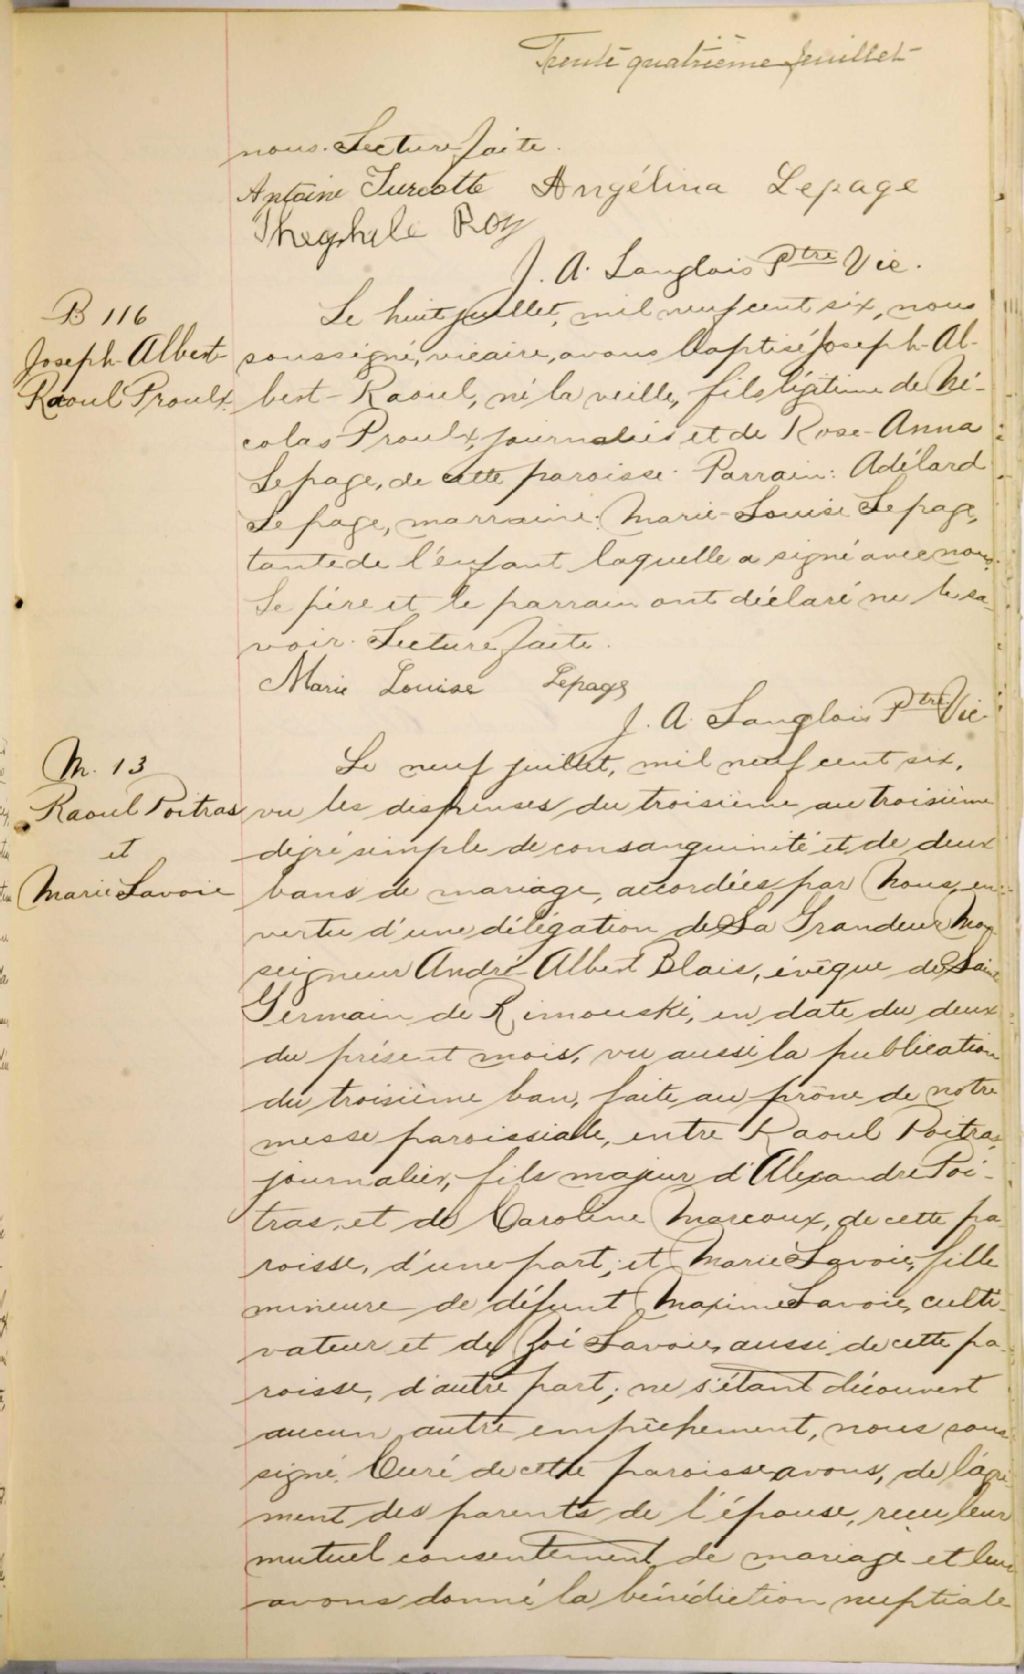 Trente quatrième feuillet
nous. Lecture faite.
Antoine Turcotte Angélina Lepage
Theophile Roy
J. A. Langlois Ptre Vic.
B 116
Joseph-Albert-
Raoul Proulx
Le huit juillet, mil neuf cent six, nous
soussigné, vicaire, avons baptisé Joseph-Al-
bert-Raoul, né la veille, fils légitime de Ni-
colas Proulx, journalier et de Rose-Anna
Lepage, de cette paroisse. Parrain: Adélard
Lepage, marraine: Marie-Louise Lepage,
tante de l'enfant laquelle a signé avec nous.
Le père et le parrain ont déclaré ne le sa-
voir. Lecture faite.
Marie Louise Lepage
J. A. Langlois Ptre Vic.
M. 13
Raoul Poitras
et
Marie Lavoie
Le neuf juillet, mil neuf cent six,
vu les dispenses du troisième au troisième
degré simple de consanguinité et de deux
bans de mariage, accordées par Nous, en
vertu d'une délégation de Sa Grandeur Mon
seigneur André-Albert Blais, évêque de Saint
Germain de Rimouski, en date du deux
du présent mois, vu aussi la publication
du troisième ban, faite au prône de notre
messe paroissiale, entre Raoul Poitras,
journalier, fils majeur d'Alexandre Poi-
tras, et de Caroline Marcoux, de cette pa
roisse, d'une part; et Marie Lavoie, fille
mineure de défunt Maxime Lavoie, culti-
vateur et de Zoé Lavoie, aussi de cette pa-
roisse, d'autre part; ne s'étant découvert
aucun autre empêchement, nous sous
signé, Curé de cette paroisse, avons, de l'agré
ment des parents de l'épouse, reçu leur
mutuel consentement de mariage et leur
avons donné la bénédiction nuptiale